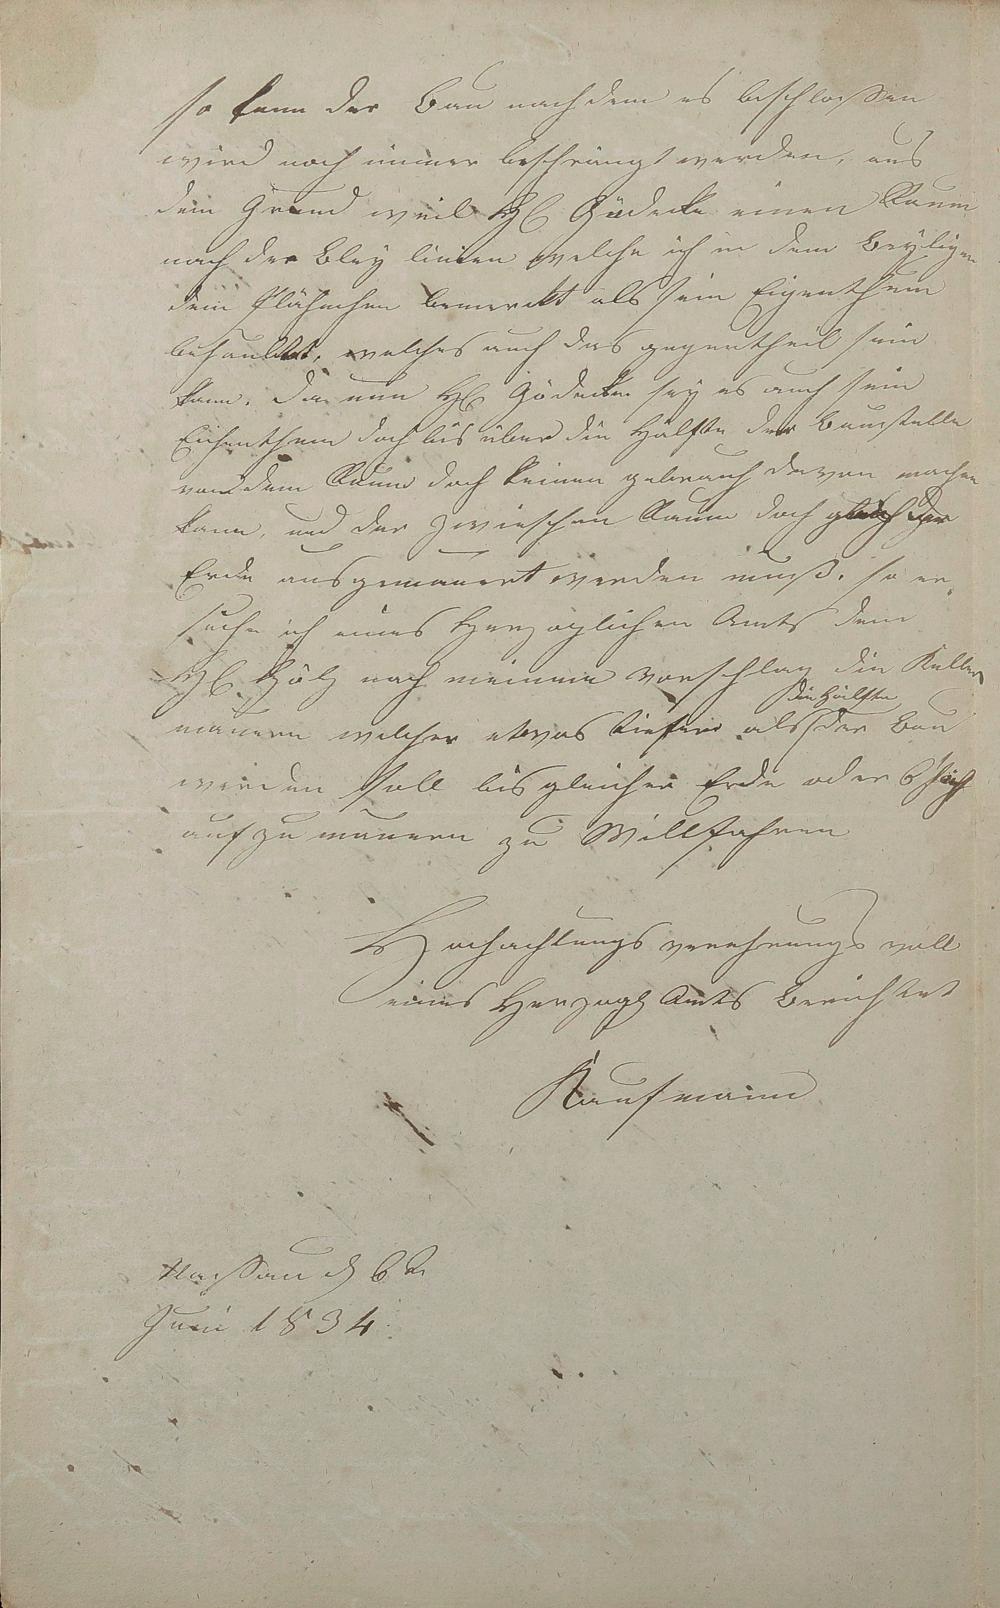 so kann der Bau nachdem es beschloßen
wird noch immer beschrängt werden, aus
dem Grund weil H Gödecke einen Raum
nach der Bley linien welche ich in dem Beyligen
dem Plähnchen bemerckt als sein Eigenthum
behaubtet, welches auch das gegentheil sein
kann. Da nun H Gödecke sey es auch sein
Eichenthum doch bis über die Hälfte der Baustelle
von dem Raum doch keinen gebrauch davon machen
kann, und der zwieschen Raum doch gleich der
Erde ausgemauert werden muß. so er¬
suche ich eines Herzoglichen Amts dem
H Hölz nach meinem Vorschlag die Keller
die Hälfte
mauern welcher etwas tiefer als der Bau
werden soll bis gleicher Erde oder 6
auf zu mauern zu Willfahren
Hochachtungs verehrungs voll
eines Herzogl Amts Berichtet
Kaufmann
Naßau d 6t
Juni 1834.